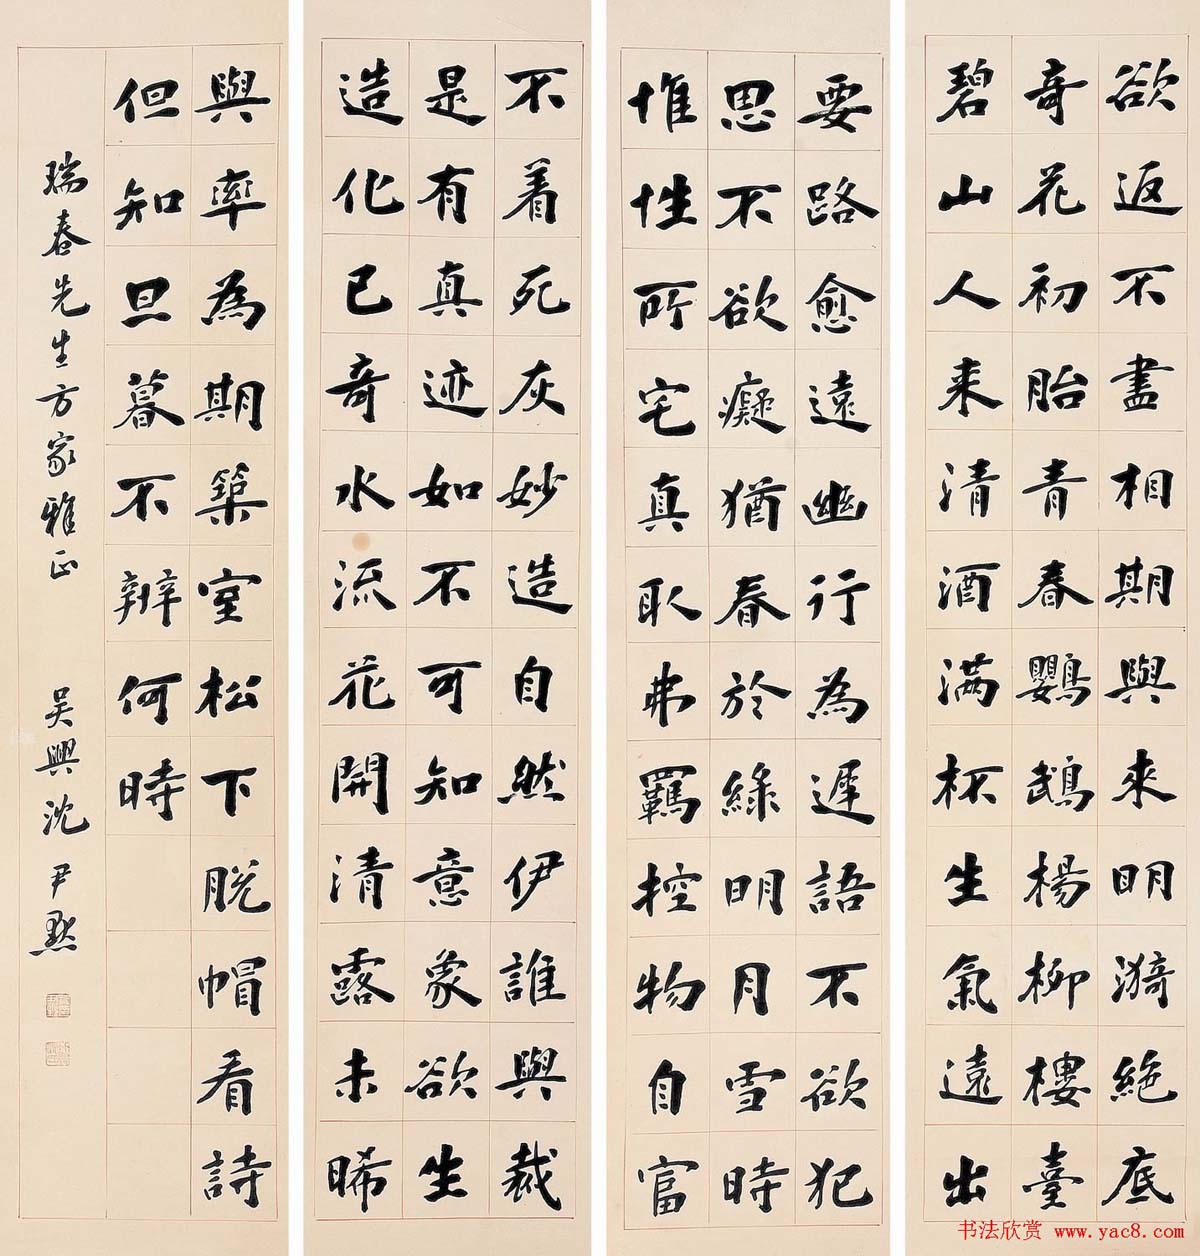 欲返不盡相期與來明漪絶底
奇花初胎青春鸚鵡楊柳樓臺
碧山人来清酒满杯生氣遠出
不着死灰妙造自然伊誰與裁
是有真迹如不可知意象欲生
造化已奇水流花開清露未晞
要路愈遠幽行為遲語不欲犯
思不欲癡猶春於緑明月雪時
惟性所宅真取弗羈控物自富
與率為期築室松下脱帽看詩
但知旦暮不辨何時
瑞春先生方家雅正
吴興沈尹默
书法欣赏 www.yac8.com